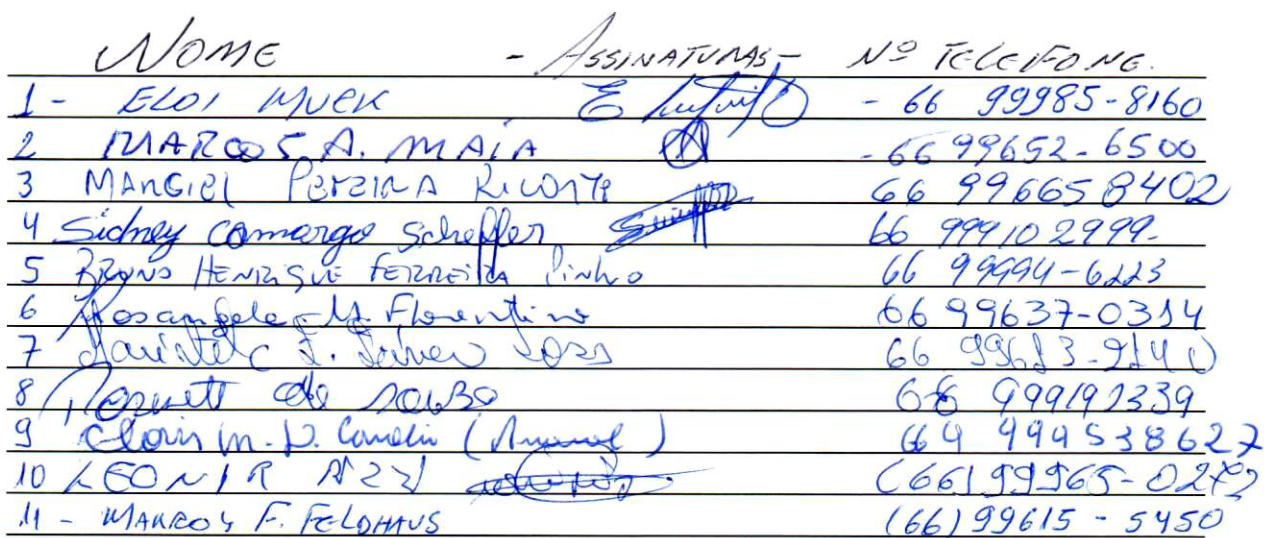 NOME - ASSINATURAS - Nº TELEFONE.
1 - ELOI MUCK - 66 99985-8160
2 MARCOS A. MAIA - 66 99652-6500
3 MANGIEL PEREIRA 66 996658402
4 Sidney Camargo Scheffer 66 999102999-
5 BRUNO HENRIQUE FERREIRA Pinho 66 99994-6223
6 Rosangela M. Florentino 66 99637-0314
7 66
8 de souza 66 999191339
9 Clovis M. D. 664 999538627
10 LEONIR (66) 99965-0272
11 - MARCOS F. FELDHAUS (66) 99615-5450